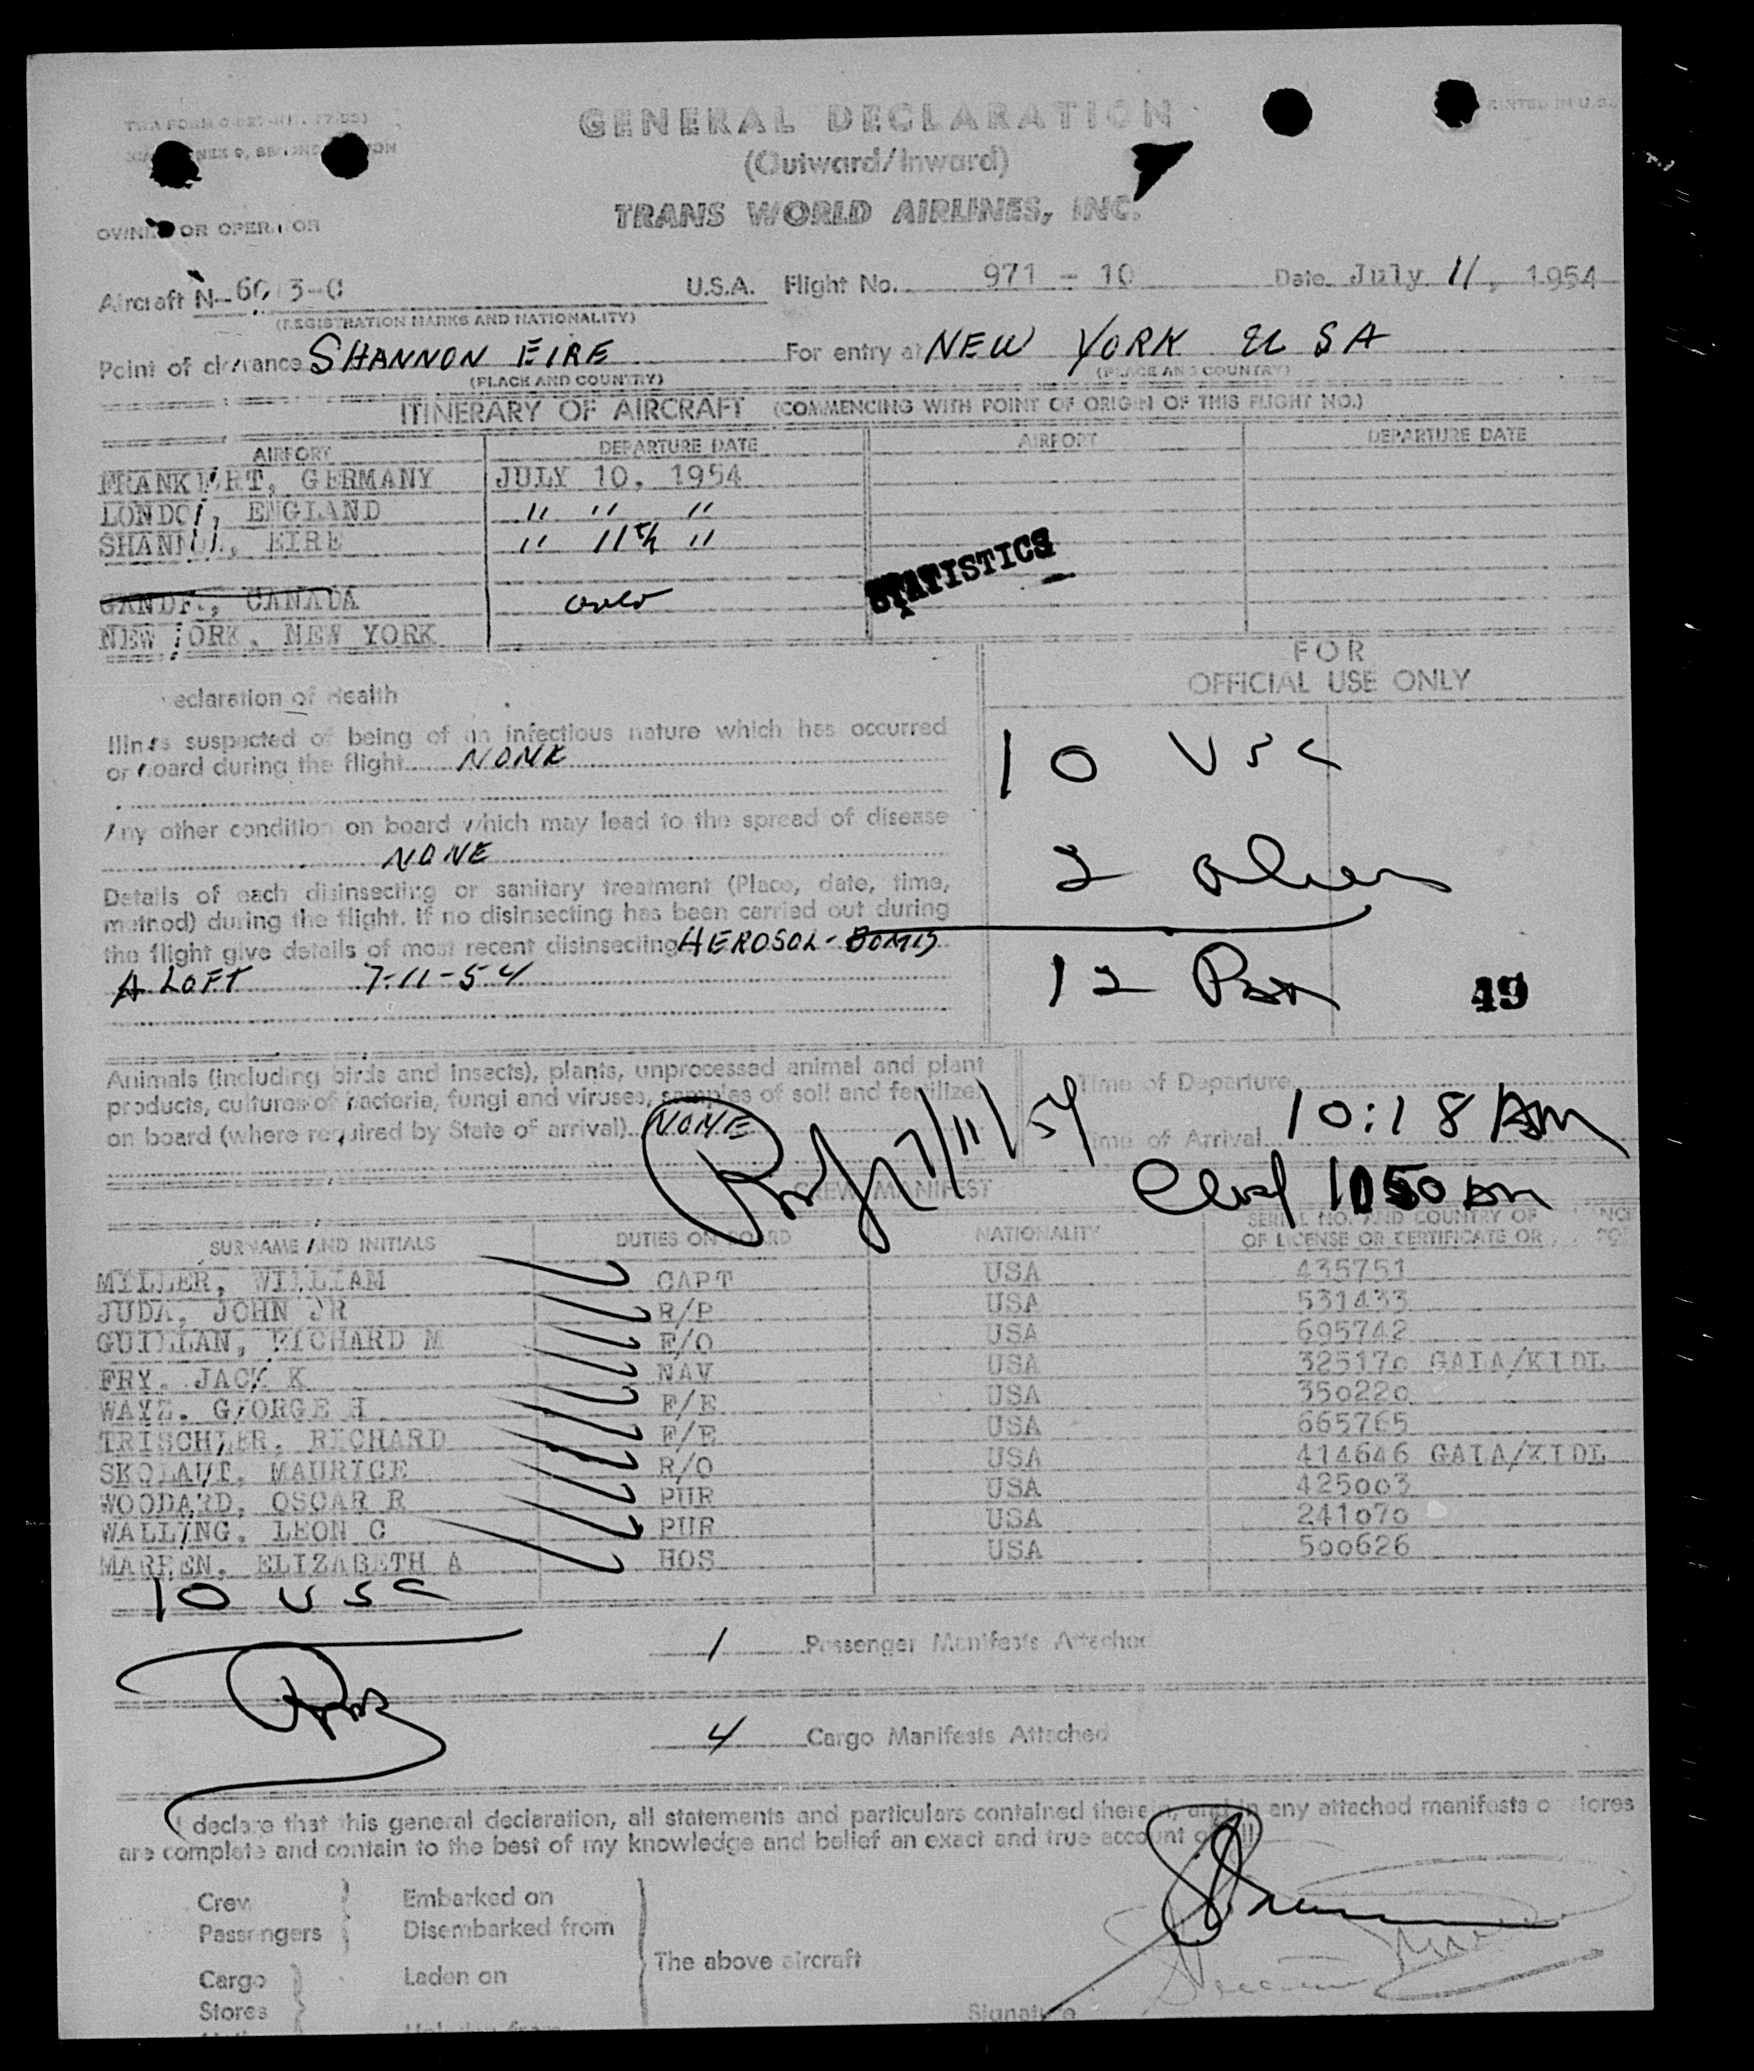 GENERAL DECLARATION
PRINTED IN U.S.
(Outward/Inward)
TRANS WORLD AIRLINES, INC.
OWNER OR OPERATOR
Aircraft N- U.S.A. Flight No. 971 - 10 Date July 11, 1954
(REGISTRATION MARKS AND NATIONALITY)
Point of clearance SHANNON EIRE For entry at NEW YORK USA
(PLACE AND COUNTRY) (PLACE AND COUNTRY)
ITINERARY OF AIRCRAFT (COMMENCING WITH POINT OF ORIGIN OF THIS FLIGHT NO.)
AIRPORT DEPARTURE DATE AIRPORT DEPARTURE DATE
FRANKFURT, GERMANY JULY 10, 1954
LONDON, ENGLAND " " "
SHANNON, EIRE " 11th "
STATISTICS
GANDER, CANADA
NEW YORK, NEW YORK
FOR
OFFICIAL USE ONLY
Declaration of Health
Illness suspected of being of an infectious nature which has occurred
on board during the flight NONE
10 USC
Any other condition on board which may lead to the spread of disease
NONE
2 Aliens
Details of each disinsecting or sanitary treatment (Place, date, time,
method) during the flight. If no disinsecting has been carried out during
the flight give details of most recent disinsecting AEROSOL-BOMB
A LOFT 7-11-54
12
49
Animals (including birds and insects), plants, unprocessed animal and plant
products, cultures of bacteria, fungi and viruses, samples of soil and fertilizer
on board (where required by State of arrival) NONE
7/11/54
Time of Departure
Time of Arrival 10:18 AM
CREW MANIFEST
SURNAME AND INITIALS DUTIES ON BOARD NATIONALITY SERIAL NO. AND COUNTRY OF
OF LICENSE OR CERTIFICATE OR
MILLER, WILLIAM CAPT USA 435751
JUDA, JOHN JR R/P USA 531433
GUILLAN, RICHARD M F/O USA 695742
FRY, JACK K NAV USA 325170 GAIA/KIDL
WAYE, GEORGE H F/E USA 350220
TRISCHLER, RICHARD F/E USA 665765
SKOLAUT, MAURICE R/O USA 414646 GAIA/KIDL
WOODARD, OSCAR R PUR USA 425003
WALLING, LEON C PUR USA 241070
MARREN, ELIZABETH A HOS USA 500626
10 USC
1 Passenger Manifests Attached
4 Cargo Manifests Attached
I declare that this general declaration, all statements and particulars contained therein, and in any attached manifests or stores
are complete and contain to the best of my knowledge and belief an exact and true account of all
Crew Embarked on
Passengers Disembarked from
The above aircraft
Cargo Laden on
Stores
Signature